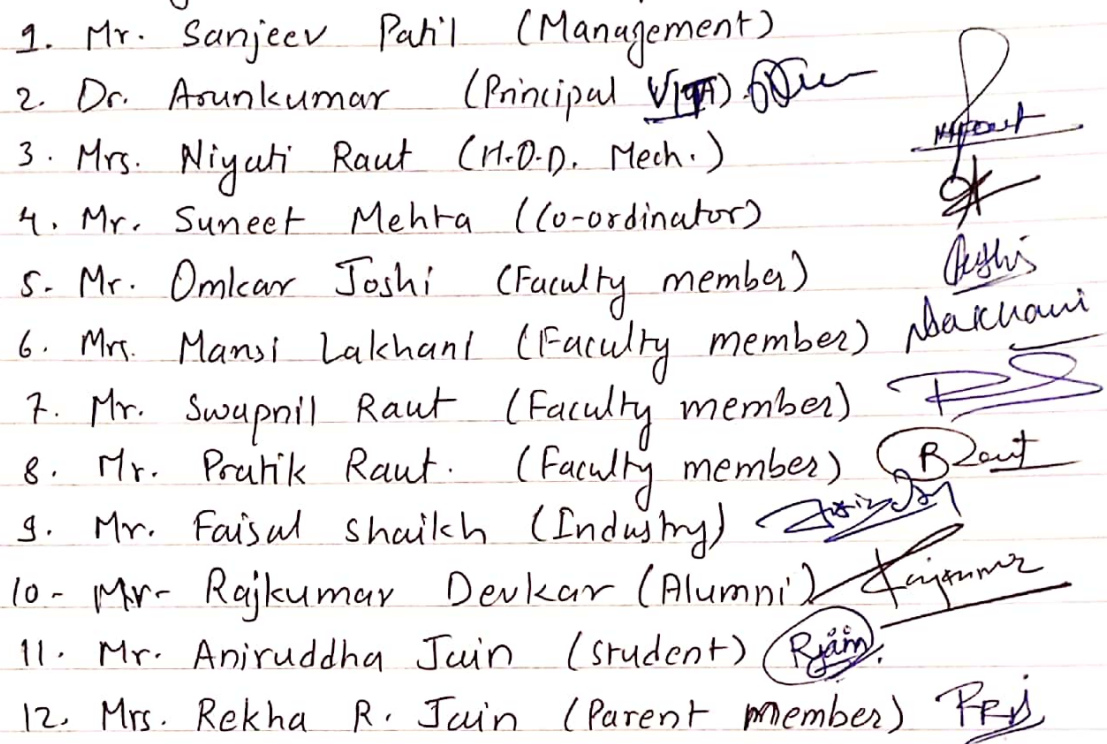 1. Mr. Sanjeev Patil (Management)
2. Dr. Arunkumar (Principal
3. Mrs. Niyati Raut (H.O.D. Mech.)
4. Mr. Suneet Mehta (Co-ordinator)
5. Mr. Omkar Joshi (Faculty member)
6. Mrs. Mansi Lakhani (Faculty member)
7. Mr. Swapnil Raut (Faculty member)
8. Mr. Pratik Raut. (Faculty member)
9. Mr. Faisal Shaikh (Industry)
10- Mr- Rajkumar Devkar (Alumni)
11. Mr. Aniruddha Jain (Student) Rjain.
12. Mrs. Rekha R. Jain (Parent member)